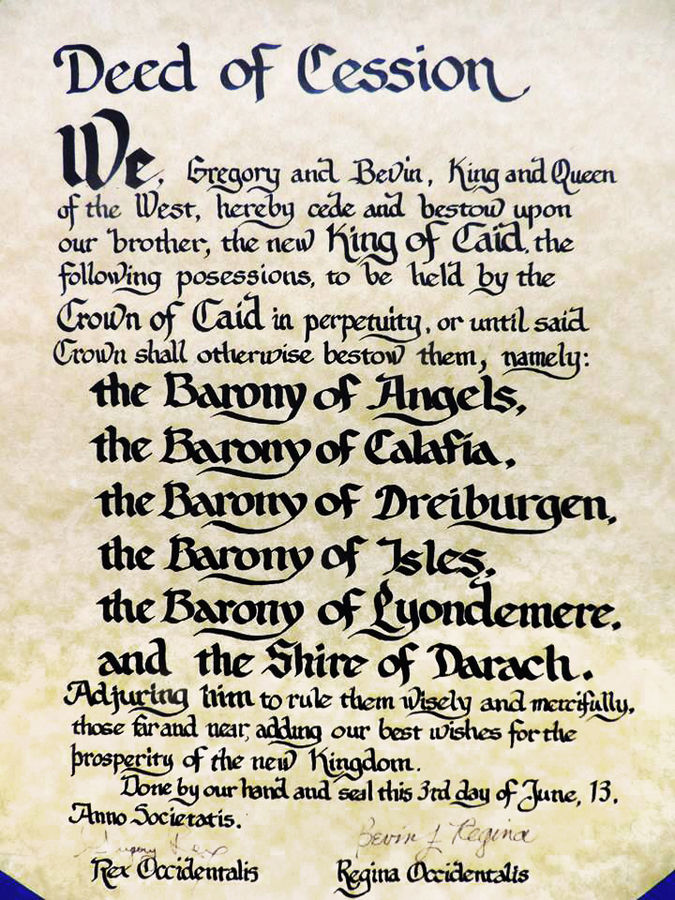 Deed of Cession
We, Gregory and Bevin, King and Queen
of the West, hereby cede and bestow upon
our brother, the new King of Caid, the
following posessions, to be held by the
Crown of Caid in perpetuity, or until said
Crown shall otherwise bestow them, namely:
the Barony of Angels,
the Barony of Calafia,
the Barony of Dreiburgen,
the Barony of Isles,
the Barony of Lyondemere,
and the Shire of Darach.
Adjuring him to rule them wisely and mercifully,
those far and near, adding our best wishes for the
prosperity of the new Kingdom.
Done by our hand and seal this 3rd day of June, 13,
Anno Societatis.
Gregory Rex Bevin L Regina
Rex Occidentalis Regina Occidentalis